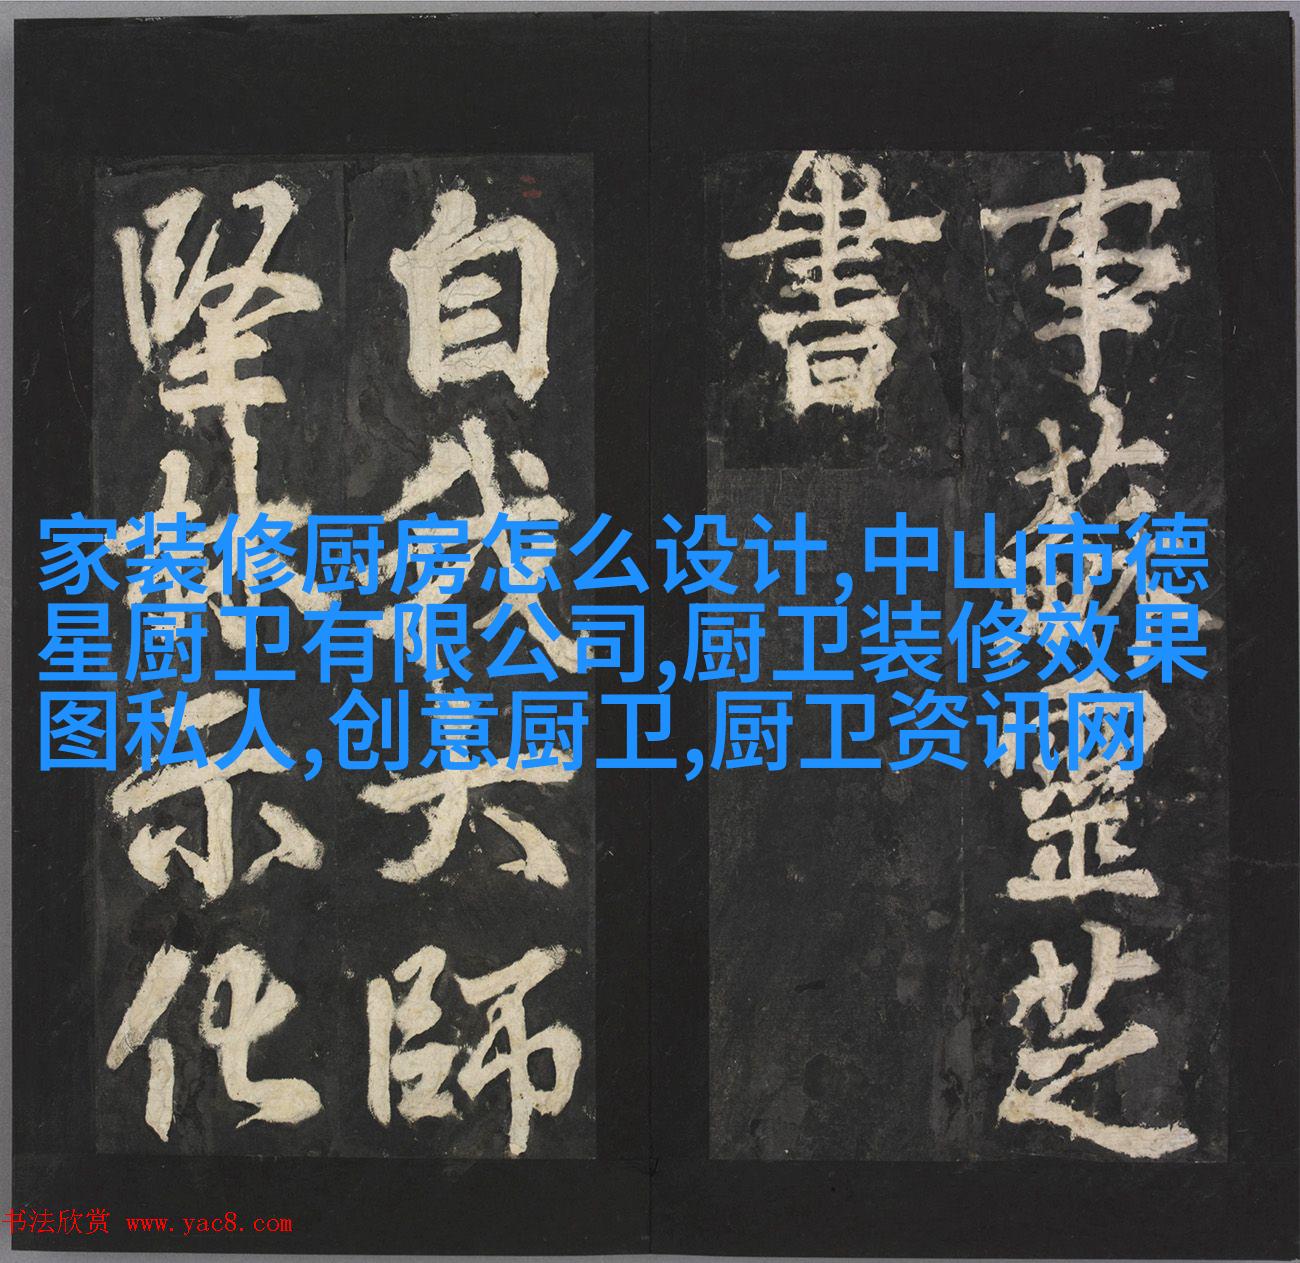 家装修厨房怎么设计,中山市德
星厨卫有限公司,厨卫装修效果
图私人,创意厨卫,厨卫资讯网
事蘇靈芝
書
自我大師
堅林示化
书法欣赏 www.yac8.com